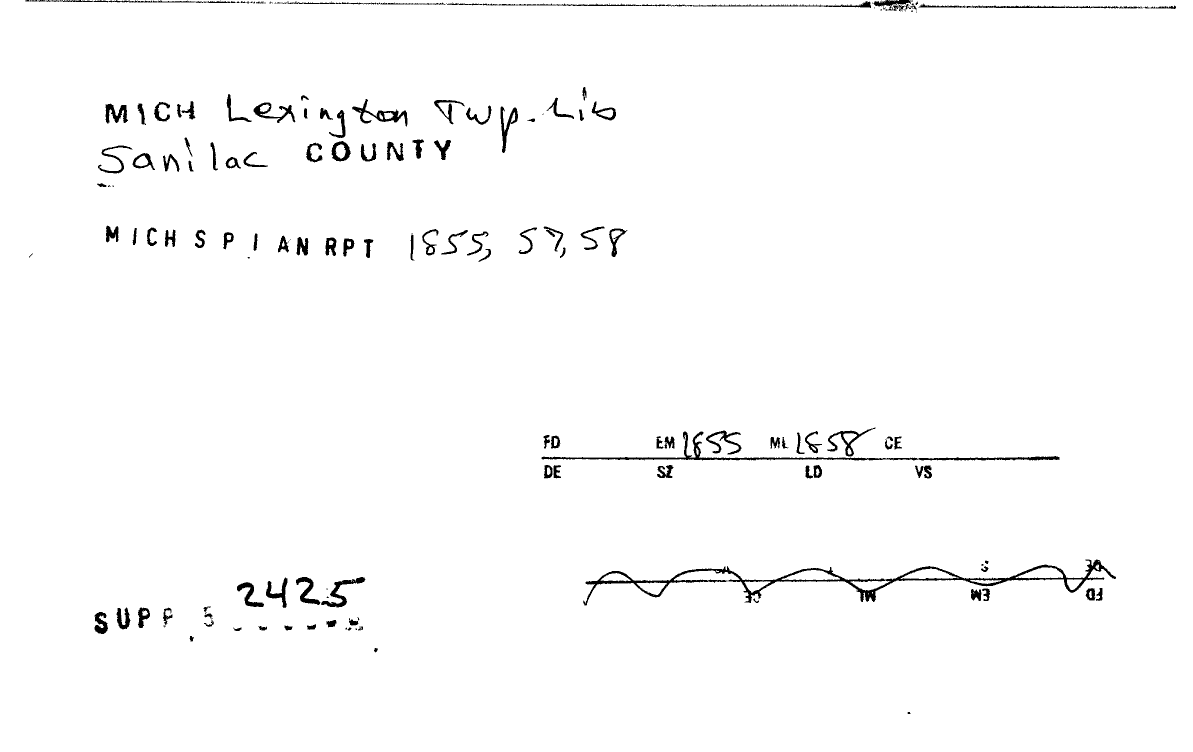 MICH Lexington Twp. Lib
Sanilac COUNTY
MICH S P I AN RPT 1855, 57, 58
FD EM 1855 ML 1858 CE
DE SZ LD VS
SUPP 5 2425
DE S
FD EM ML CE